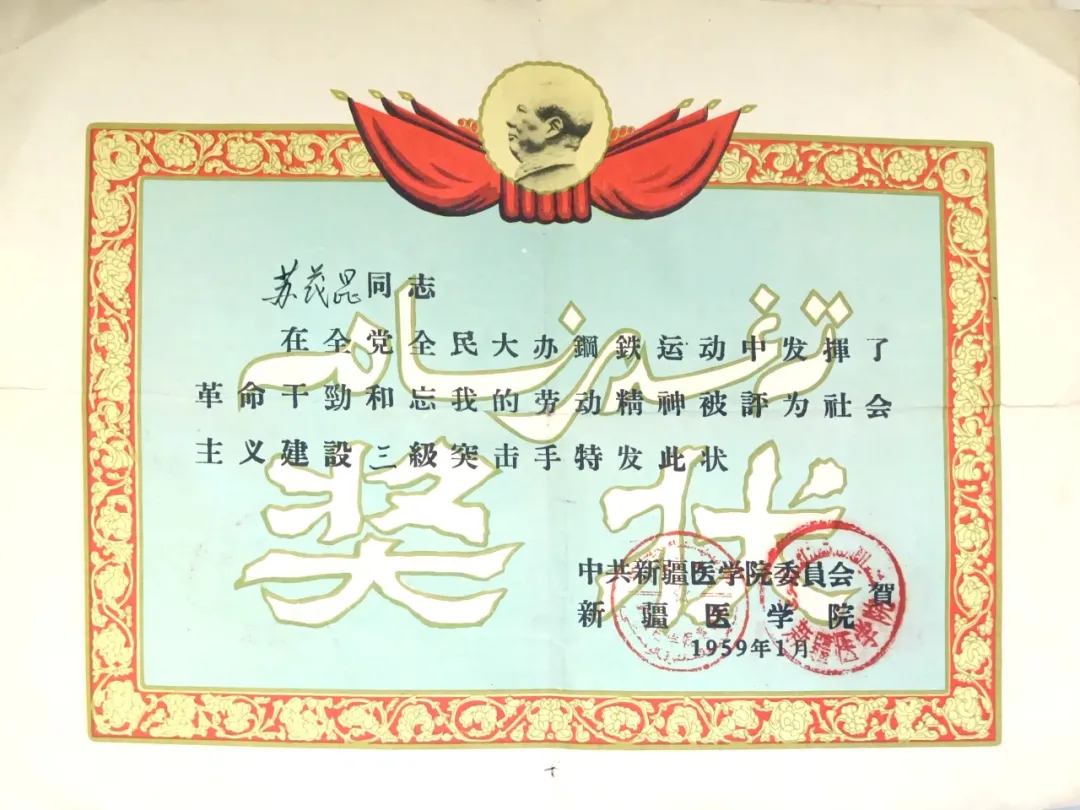 苏茂昆同志
在全党全民大办鋼鉄运动中发揮了
革命干勁和忘我的劳动精神被評为社会
主义建設三級突击手特发此状
奖状
中共新疆医学院委員会
新疆医学院
賀
1959年1月
新疆医学院